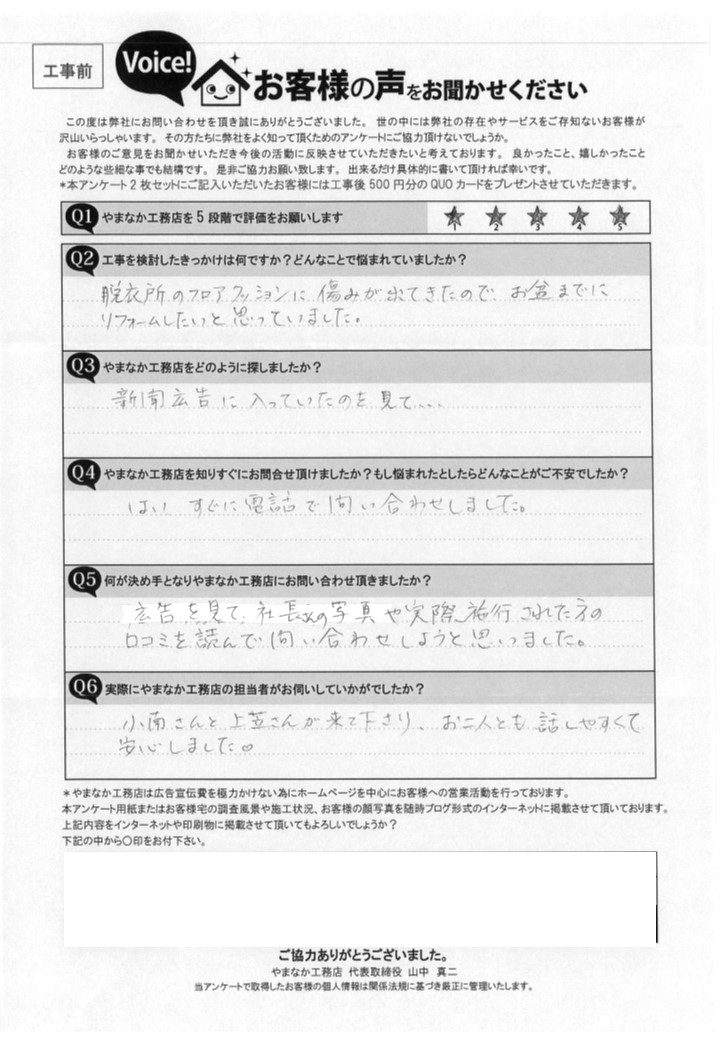 工事前
Voice!
お客様の声をお聞かせください
この度は弊社にお問い合わせを頂き誠にありがとうございました。 世の中には弊社の存在やサービスをご存知ないお客様が
沢山いらっしゃいます。 その方たちに弊社をよく知って頂くためのアンケートにご協力頂けないでしょうか。
お客様のご意見をお聞かせいただき今後の活動に反映させていただきたいと考えております。 良かったこと、嬉しかったこと
どのような些細な事でも結構です。 是非ご協力お願い致します。 出来るだけ具体的に書いて頂ければ幸いです。
*本アンケート2枚セットにご記入いただいたお客様には工事後500円分のQUOカードをプレゼントさせていただきます。
Q1 やまなか工務店を5段階で評価をお願いします 1 2 3 4 5
Q2 工事を検討したきっかけは何ですか？どんなことで悩まれていましたか？
脱衣所のフロアクッションに傷みが出てきたので お盆までに
リフォームしたいと思っていました。
Q3 やまなか工務店をどのように探しましたか？
新聞広告に入っていたのを見て...
Q4 やまなか工務店を知りすぐにお問合せ頂けましたか？もし悩まれたとしたらどんなことがご不安でしたか？
はい すぐに電話で問い合わせしました。
Q5 何が決め手となりやまなか工務店にお問い合わせ頂きましたか？
広告を見て、社長さんの写真や実際、施行された方の
口コミを読んで問い合わせしようと思いました。
Q6 実際にやまなか工務店の担当者がお伺いしていかがでしたか？
小南さんと上笠さんが来て下さり、お二人とも話しやすくて
安心しました。
*やまなか工務店は広告宣伝費を極力かけない為にホームページを中心にお客様への営業活動を行っております。
本アンケート用紙またはお客様宅の調査風景や施工状況、お客様の顔写真を随時ブログ形式のインターネットに掲載させて頂いております。
上記内容をインターネットや印刷物に掲載させて頂いてもよろしいでしょうか？
下記の中から〇印をお付下さい。
ご協力ありがとうございました。
やまなか工務店 代表取締役 山中 真二
当アンケートで取得したお客様の個人情報は関係法規に基づき厳正に管理いたします。